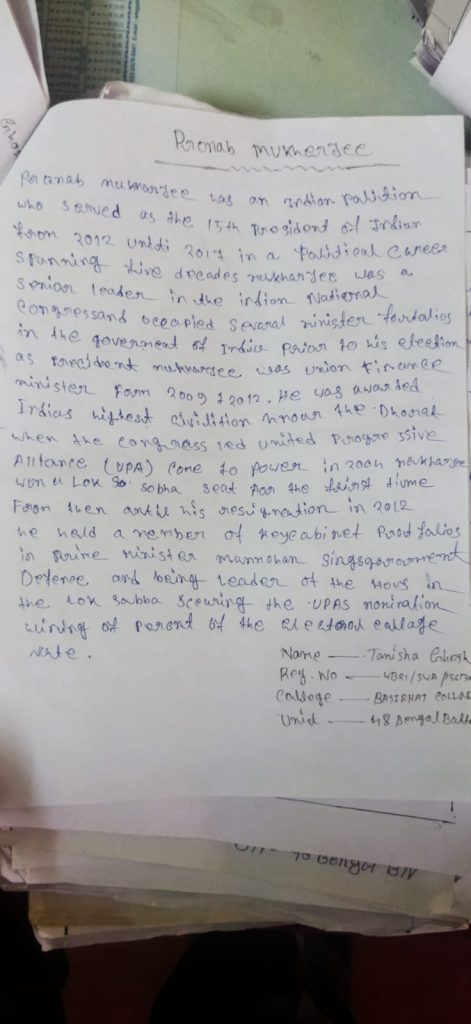 Pronab Mukherjee
Poranab mukharjee was an Indian Palition
who served as the 15th President of Indian
from 2012 until 2017 in a Political Career
Spanning five decades mukharjee was a
Senior leader in the indian National
Congressand occupied Sevaral minister fortalios
in the goverment of India Prior to his election
as President mukharjee was union Finance
minister Form 2009 to 2012. He was awarded
Indias highest civilition hnour the Dhorat
when the Congress led united Progre ssive
Alltance (UPA) Cone to power in 2004 mukharjee
won a Lok So sobha Seat For the first time
From then antil his resignation in 2012
he held a member of Keycabinet Prodfolios
in Prime minister manmohan Singsgovornment
Defence and being Leader of the Hous in
the Lok sabba Sceuring the UPAS nomination
wining of Perent of the Electoral callage
vate.
Name — Tanisha Ghosh
Reg. No — WBRI/SWA
Callage — BASIRHAT
Unid — 48 Bengal
Bengal BN